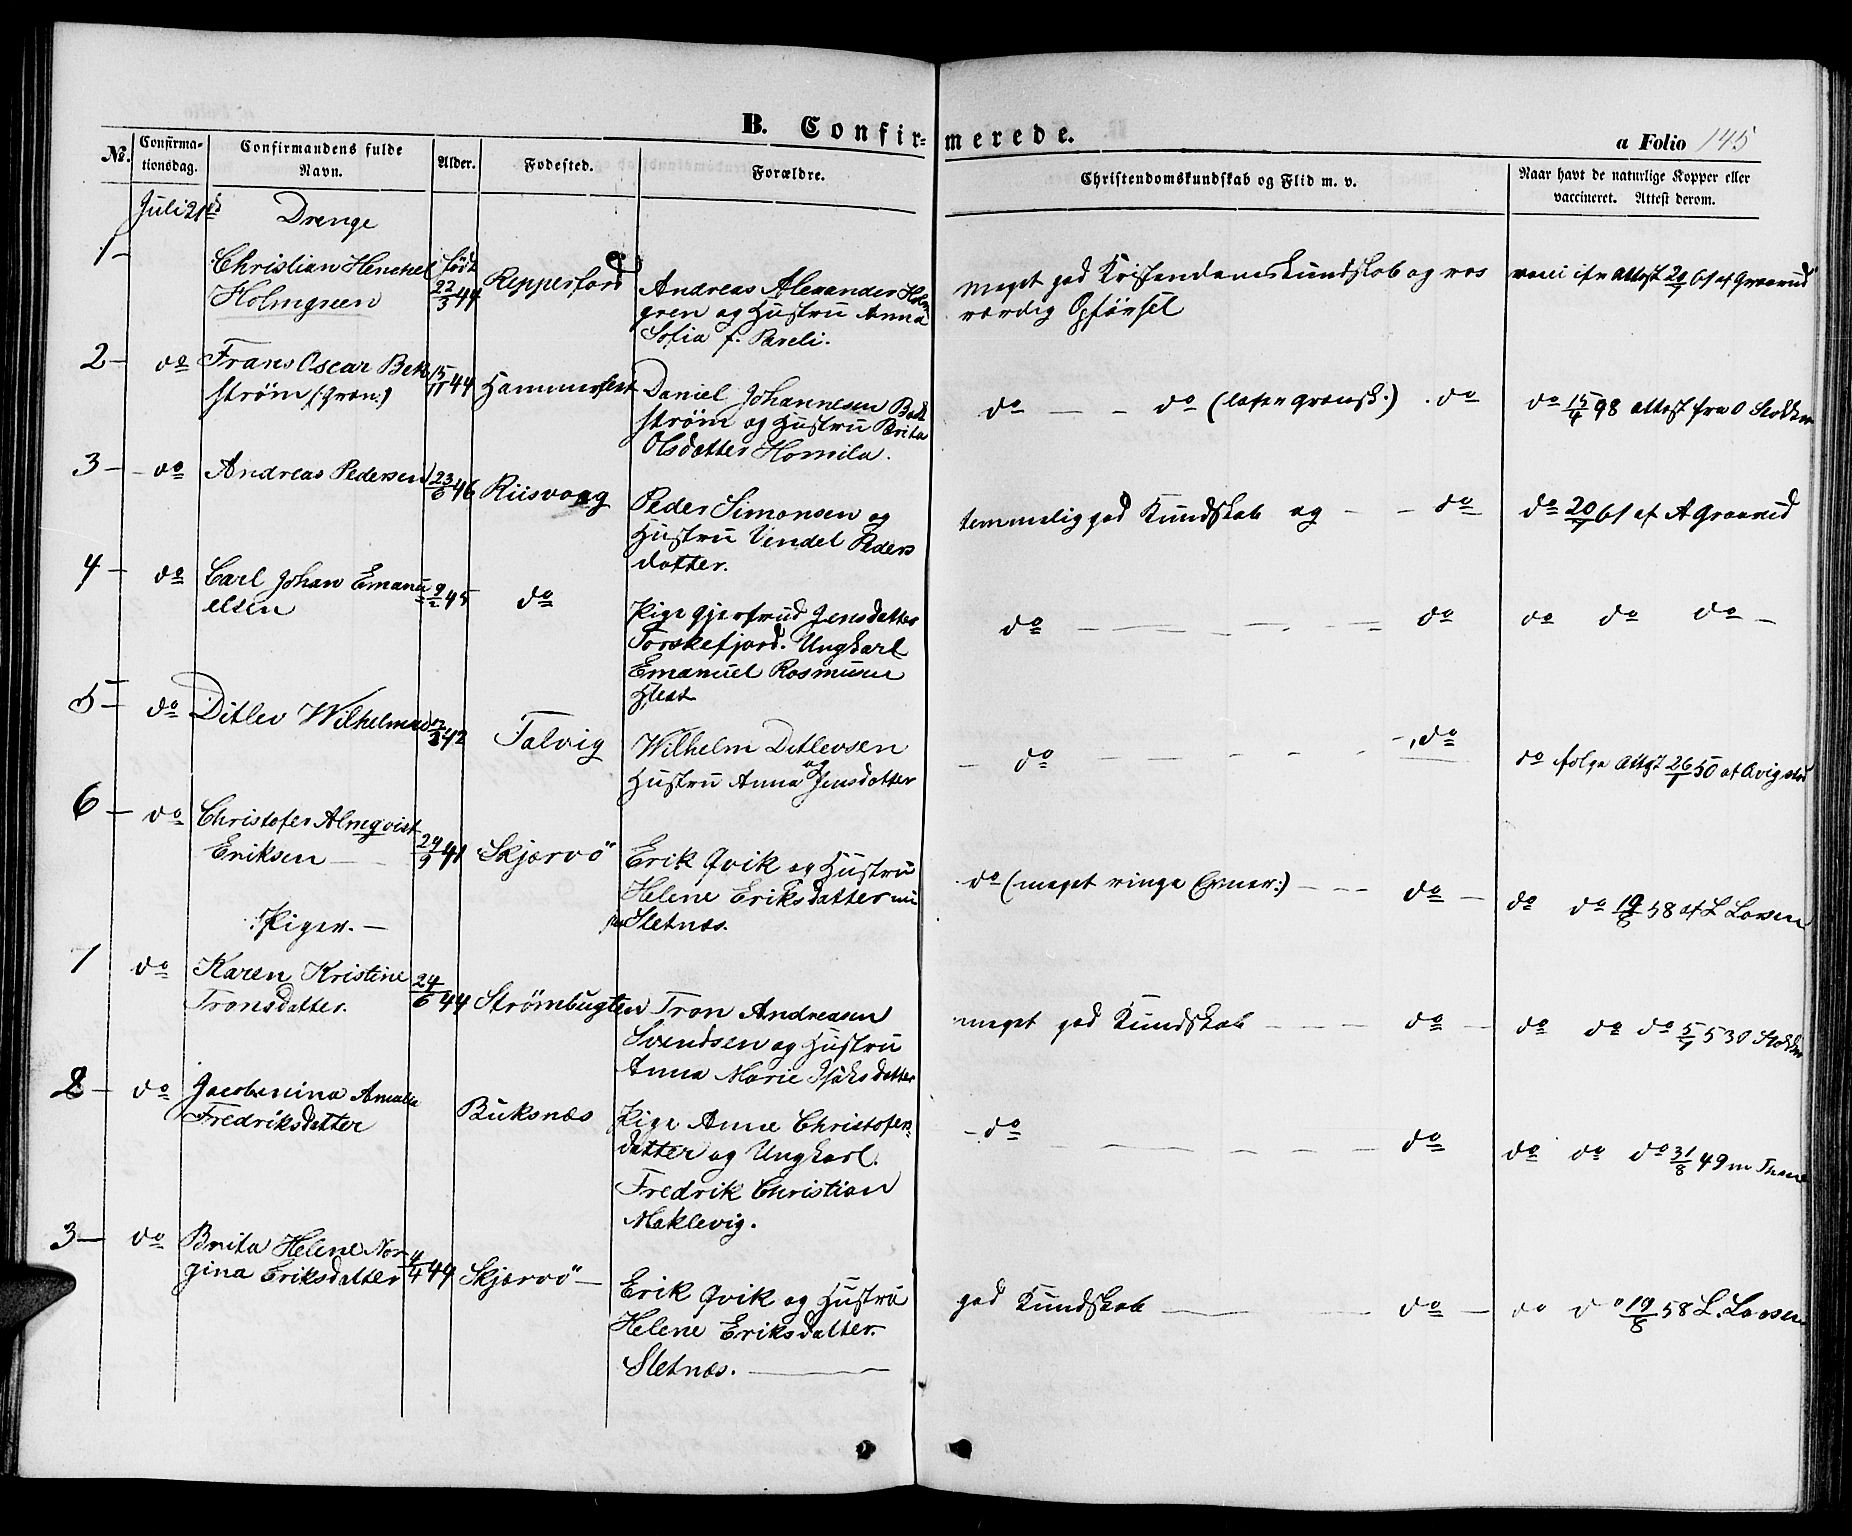 B. Confir-
merede.
a Folio 145
No.
Confirma-
tionsdag.
Confirmandens fulde
Navn.
Alder.
Fødested.
Forældre.
Christendomskundskab og Flid m. v.
Naar havt de naturlige Kopper eller
vaccineret. Attest derom.
Juli 21
Drenge
1-
Christian Henchel
Holmgreen
født
22/3 44
Repperfjord
Andreas Alexander Holm
gren og Hustru Anna
Sofia f. Pareli.
Meget god Kristendomskundskab og ros
værdig Opførsel
vacc ifø Attest 20/7 61 af Graarud
2- do
Frans Oscar Bek
strøm (Qvæn.)
15/11 44
Hammerfest
Daniel Johannesen Bek
strøm og Hustru Brita
Olsdatter Homila.
do - - do (læser qvænsk.) . do
do 15/4 98 attest fra O Stokken
3- do
Andreas Pedersen
23/6 46
Riisvaag
Peder Simonsen og
Hustru Vendel Peders
datter.
temmelig god Kundskab og - - do
do 20/7 61 af A Graarud
4- do
Carl Johan Emanu
elsen
9/2 45
do
Pige Gjertrud Jensdatter
Torskefjord. Ungkarl
Emanuel Rasmusen
do - - - do
do do do -
5- do
Ditlev Wilhelmsen
42
Talvig
Wilhelm Ditlevsen
og
Hustru Anna Jensdatter
- do - - - do
do følge Attest 26/1 50 af Qvigstad
6- do
Christofer Almqvist
Eriksen
29/9 41
Skjærvö
Erik Qvik og Hustru
Helene Eriksdatter nu
Sletnæs.
do (meget ringe Evner:) - - - do -
do do 19/8 58 af L Larsen
Piger. -
1 do
Karen Kristine
Tronsdatter.
24/6 44
Strømbugten
Tron Andreasen
Svendsen og Hustru
Anna Marie Isaksdatter
meget god Kundskab - - - do -
do do do 5/7 53 O Stokken
2- do
Jacobenina Amalia
Fredriksdatter
Buksnæs
Pige Anne Christofers-
datter og Ungkarl.
Fredrik Christian
Maklevig.
- do - - - do
do do do 31/8 49
3- do
Brita Helene Nor
gina Eriksdatter
4/4 44
Skjærvö -
Erik Qvik og Hustru
Helene Eriksdatter.
Sletnæs.
god Kundskab - - do -
do do 19/8 58 L. Larsen